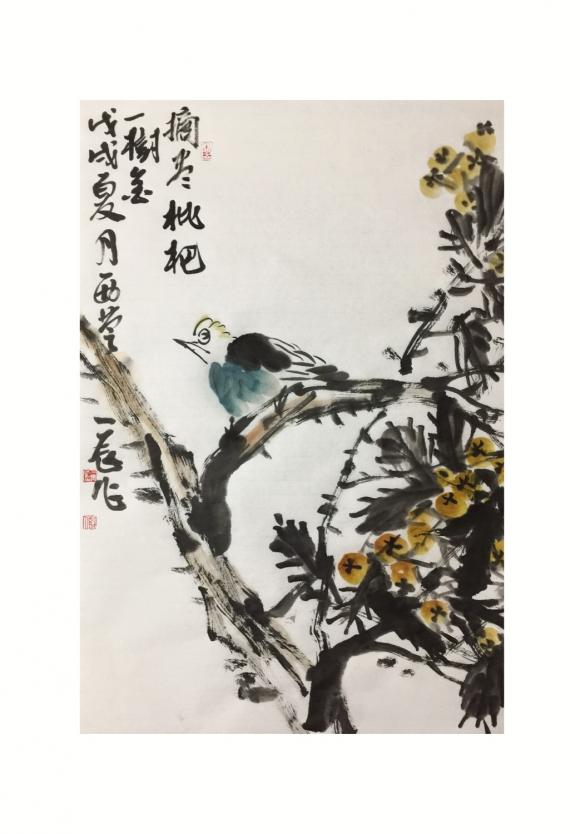 摘尽枇杷
一树金
戊戌夏月西堂
一辰作